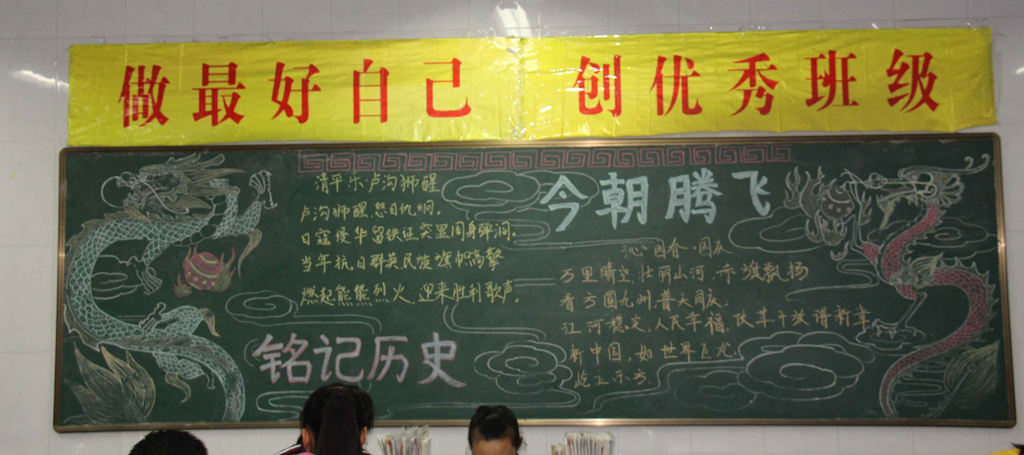 做最好自己 创优秀班级
清平乐·卢沟狮醒
卢沟狮醒,怒目仇恫。
日寇侵华留铁证突里周身弹洞。
当年抗日群英民族旗帜高擎
燃起熊熊烈火,迎来胜利歌声。
铭记历史
今朝腾飞
沁·园春·国庆
万里晴空,壮丽山河,赤旗飘扬
看方圆九州,普天同庆
江河稳定,人民幸福,改革开放谱新章
新中国,如世界巨龙
屹立东方.